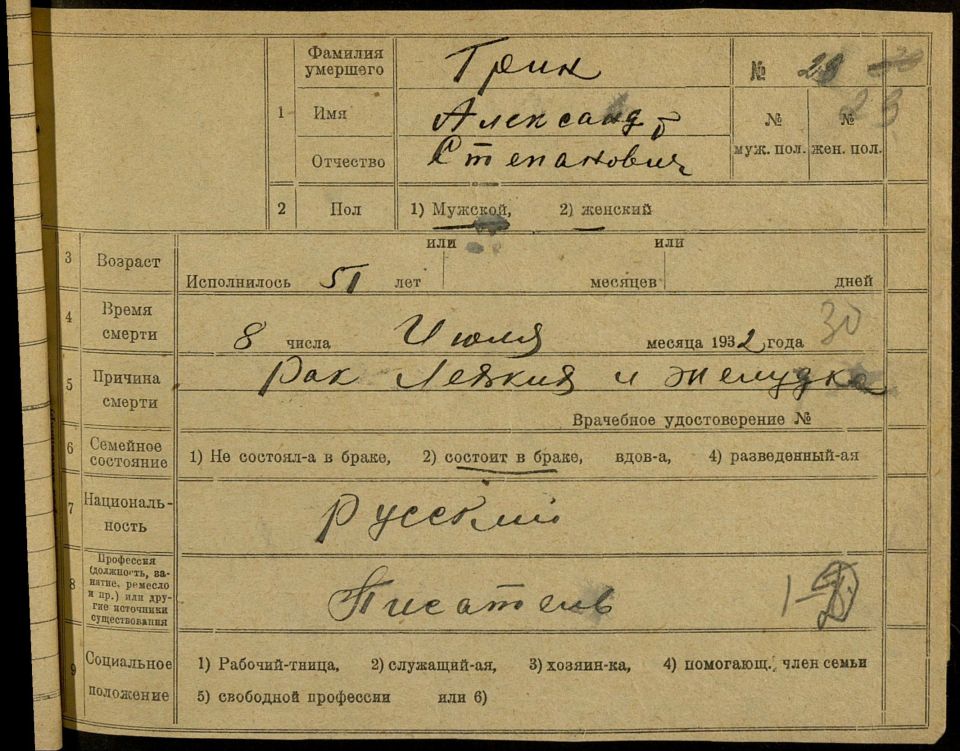 Фамилия умершего Грин № 23
1 Имя Александр № №
Отчество Степанович муж. пол. жен. пол. 23
2 Пол 1) Мужской, 2) женский
или или
3 Возраст Исполнилось 51 лет месяцев дней
4 Время смерти 8 числа Июля месяца 1932 года 30
5 Причина смерти Рак Легких и желудка
Врачебное удостоверение №
6 Семейное состояние 1) Не состоял-а в браке, 2) состоит в браке, вдов-а, 4) разведенный-ая
7 Националь-
ность Русский
8 Профессия
(должность, за-
нятие, ремесло
и пр.) или дру-
гие источники
существования Писатель
9 Социальное положение 1) Рабочий-тница, 2) служащий-ая, 3) хозяин-ка, 4) помогающ. член семьи
5) свободной профессии или 6)